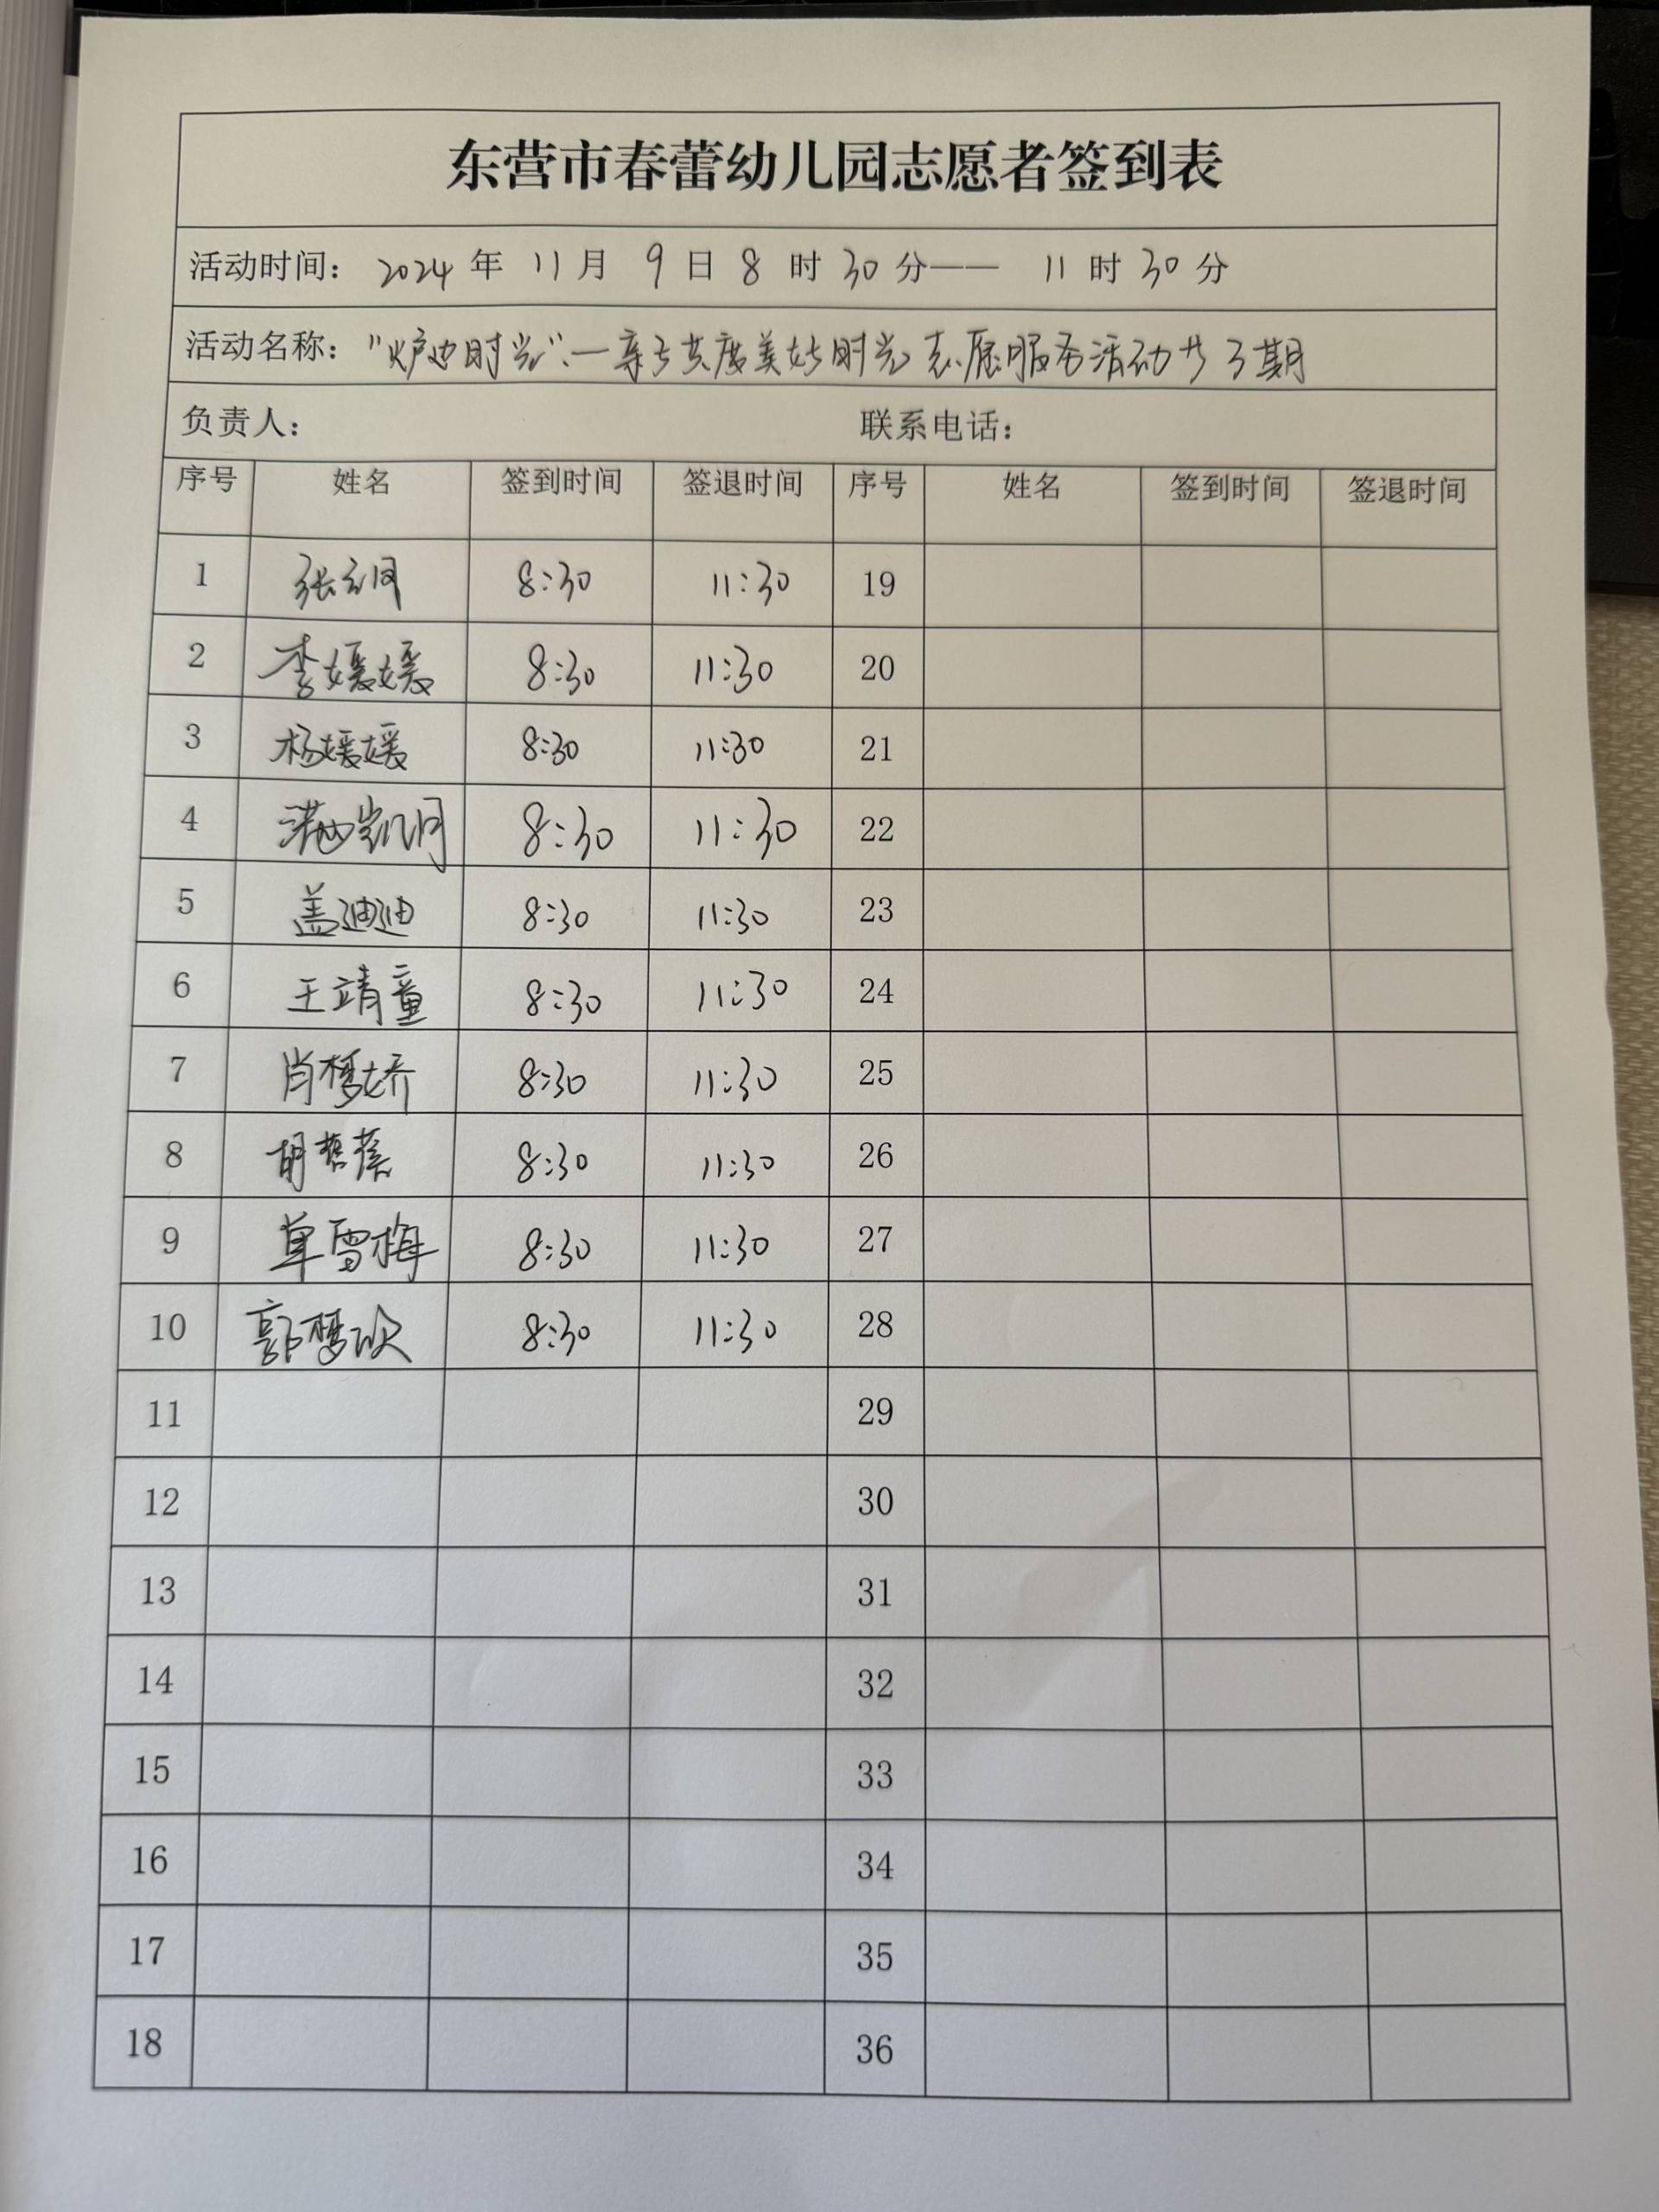 东营市春蕾幼儿园志愿者签到表
活动时间： 2024 年 11 月 9 日 8 时 30 分—— 11 时 30 分
活动名称： "炉边时光"—亲子共度美好时光志愿服务活动 3期
负责人： 联系电话：
序号 姓名 签到时间 签退时间 序号 姓名 签到时间 签退时间
1 张 8:30 11:30 19
2 李媛媛 8:30 11:30 20
3 杨媛媛 8:30 11:30 21
4 满凯月 8:30 11:30 22
5 盖迪迪 8:30 11:30 23
6 王靖童 8:30 11:30 24
7 肖梦娇 8:30 11:30 25
8 胡 8:30 11:30 26
9 单雪梅 8:30 11:30 27
10 郭梦 8:30 11:30 28
11 29
12 30
13 31
14 32
15 33
16 34
17 35
18 36